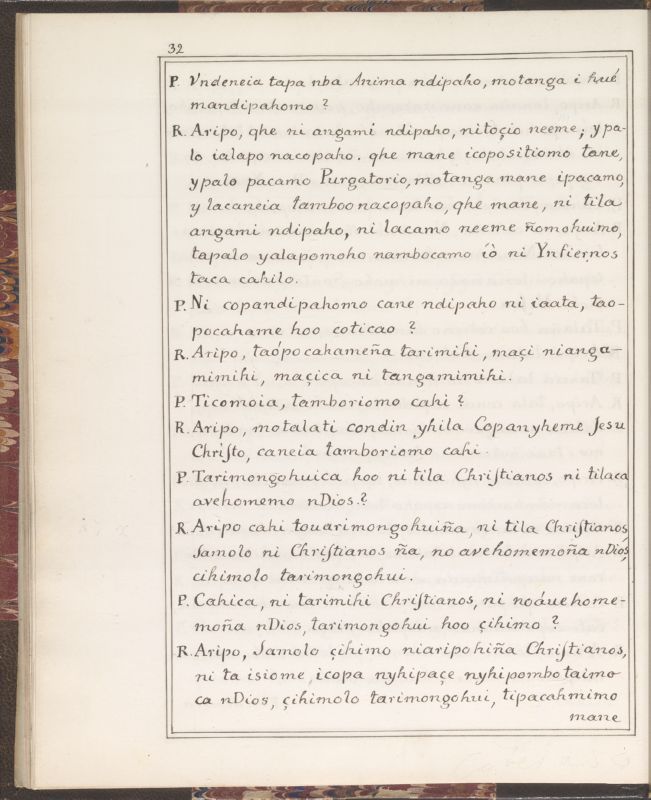 32
P. Vndeneia tapa nba Anima ndipaho, motanga i hué
mandipahomo ?
R. Aripo, qhe ni angami ndipaho, nitoçio neeme; y pa-
lo ialapo nacopaho. qhe mane icopositiomo tane,
ypalo pacamo Purgatorio, motanga mane ipacamo,
y lacaneia tamboo nacopaho, qhe mane, ni tila
angami ndipaho, ni lacamo neeme ñomohuimo,
tapalo yalapomoho nambocamo íò ni Ynfiernos
taca cahilo.
P. Ni copandipahomo cane ndipaho ni iaata, tao-
pocahame hoo coticao ?
R. Aripo, taópocahameña tarimihi, maçi nianga-
mimihi, maçica ni tangamimihi.
P. Ticomoia, tamboriomo cahi ?
R. Aripo, motalati condin yhila Copanyheme Jesu
Chriſto, caneia tamboriomo cahi.
P. Tarimongohuica hoo ni tila Chriſtianos ni tilaca
avehomemo nDios.?
R. Aripo cahi touarimongohuiña, ni tila Chriſtianos,
Samolo ni Chriſtianos ña, no avehomemoña nDiós,
cihimolo tarimongohui.
P. Cahica, ni tarimihi Chriſtianos, ni noáuehome-
moña nDios, tarimongohui hoo çihimo ?
R. Aripo, Samolo çihimo niaripohiña Chriſtianos,
ni ta isiome, icopa nyhipaçe nyhipombo taimo
ca nDios, çihimolo tarimongohui, tipacahmimo
mane